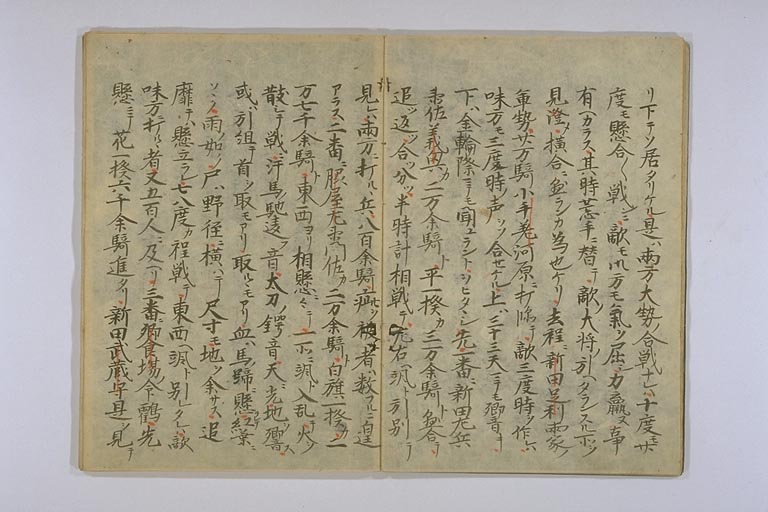 リ下テソ居タリケル是ハ両方大勢ノ合戦ナレハ十度モ廿
度モ懸合〱戦ニ敵モ御方モ氣ヲ屈シ力羸ヌ事
有ヘカラス其時荒手ニ替テ敵ノ大将ノ引ヘタランスル所ヲ
見澄メ横合ニ
軍勢廿万騎小手差河原ニ打臨テ敵三度時ヲ作レハ
味方モ三度時ノ声ヲソ合セケル上ハ三十三天ニモ響キ
下ハ金輪際ニモ聞ユラントヲヒタヽシ先一番ニ新田左兵
衛佐義興ノ二万余騎ト平一揆カ三万余騎ト
追ツ返ツ合ツ分ツ半時計相戦テ左右ヘ颯ト引別テ
見レハ両方ニ打ルヽ兵八百余騎疵ヲ被者ハ数フルニ遑
アラス二番ニ脇屋左衛門佐カ二万余騎ト白旗一揆カ二
万七千余騎ト東西ヨリ相懸ニ〱シテ一所ニ颯ト入乱テ火ヲ
散シテ戦ニ汗馬ノ馳違音太刀ノ鍔音天ニ光地ニ響ク
或ハ引組テ首ヲ取モアリ取ルヽモアリ血ハ馬蹄ニ懸テ紅葉ニ
ソヽク雨ノ如シ尸ハ野径ニ横ハテ尺寸モ地ヲ余サス追
靡テハ懸立ラレ七八度カ程戦テ東西ヘ颯ト別タレハ敵
味方打ルヽ者又五百人ニ及ヘリ三番ニ饗庭命鶴先
懸ニテ花一揆六千余騎進タリ新田武蔵守是ヲ見テ